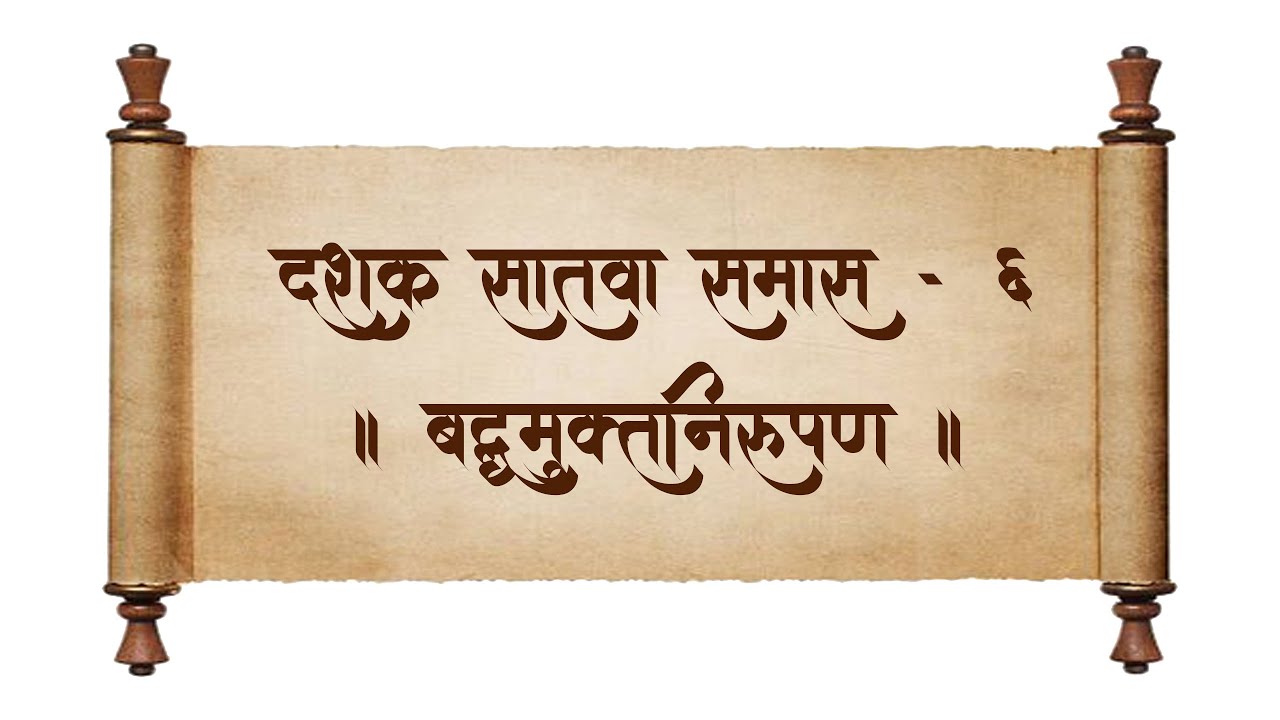 दशक सातवा समास - ६
॥ बद्धमुक्तनिरुपण ॥